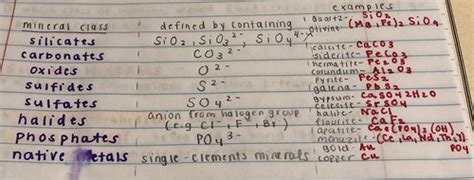 examples
mineral class defined by containing quartz- SiO2
olivine- (Mg,Fe)2 SiO4
silicates SiO2, SiO3 2-, SiO4 4-
carbonates CO3 2- calcite- CaCO3
siderite- FeCO3
oxides O 2- hermatite- Fe2O3
corundum- Al2O3
sulfides S 2- Pyrite- FeS2
galena- PbS2
sulfates SO4 2- gypsum- CaSO4 2H2O
celesite- SrSO4
halides anion from halogen group halite- NaCl
(e.g Cl-, F-, Br-) flourite- CaF2
phosphates PO4 3- apatite- (PO4)3 (OH)
monazite- (Ce, La, Nd, Th, Y) PO4
native single-elements minerals gold- Au
copper Cu